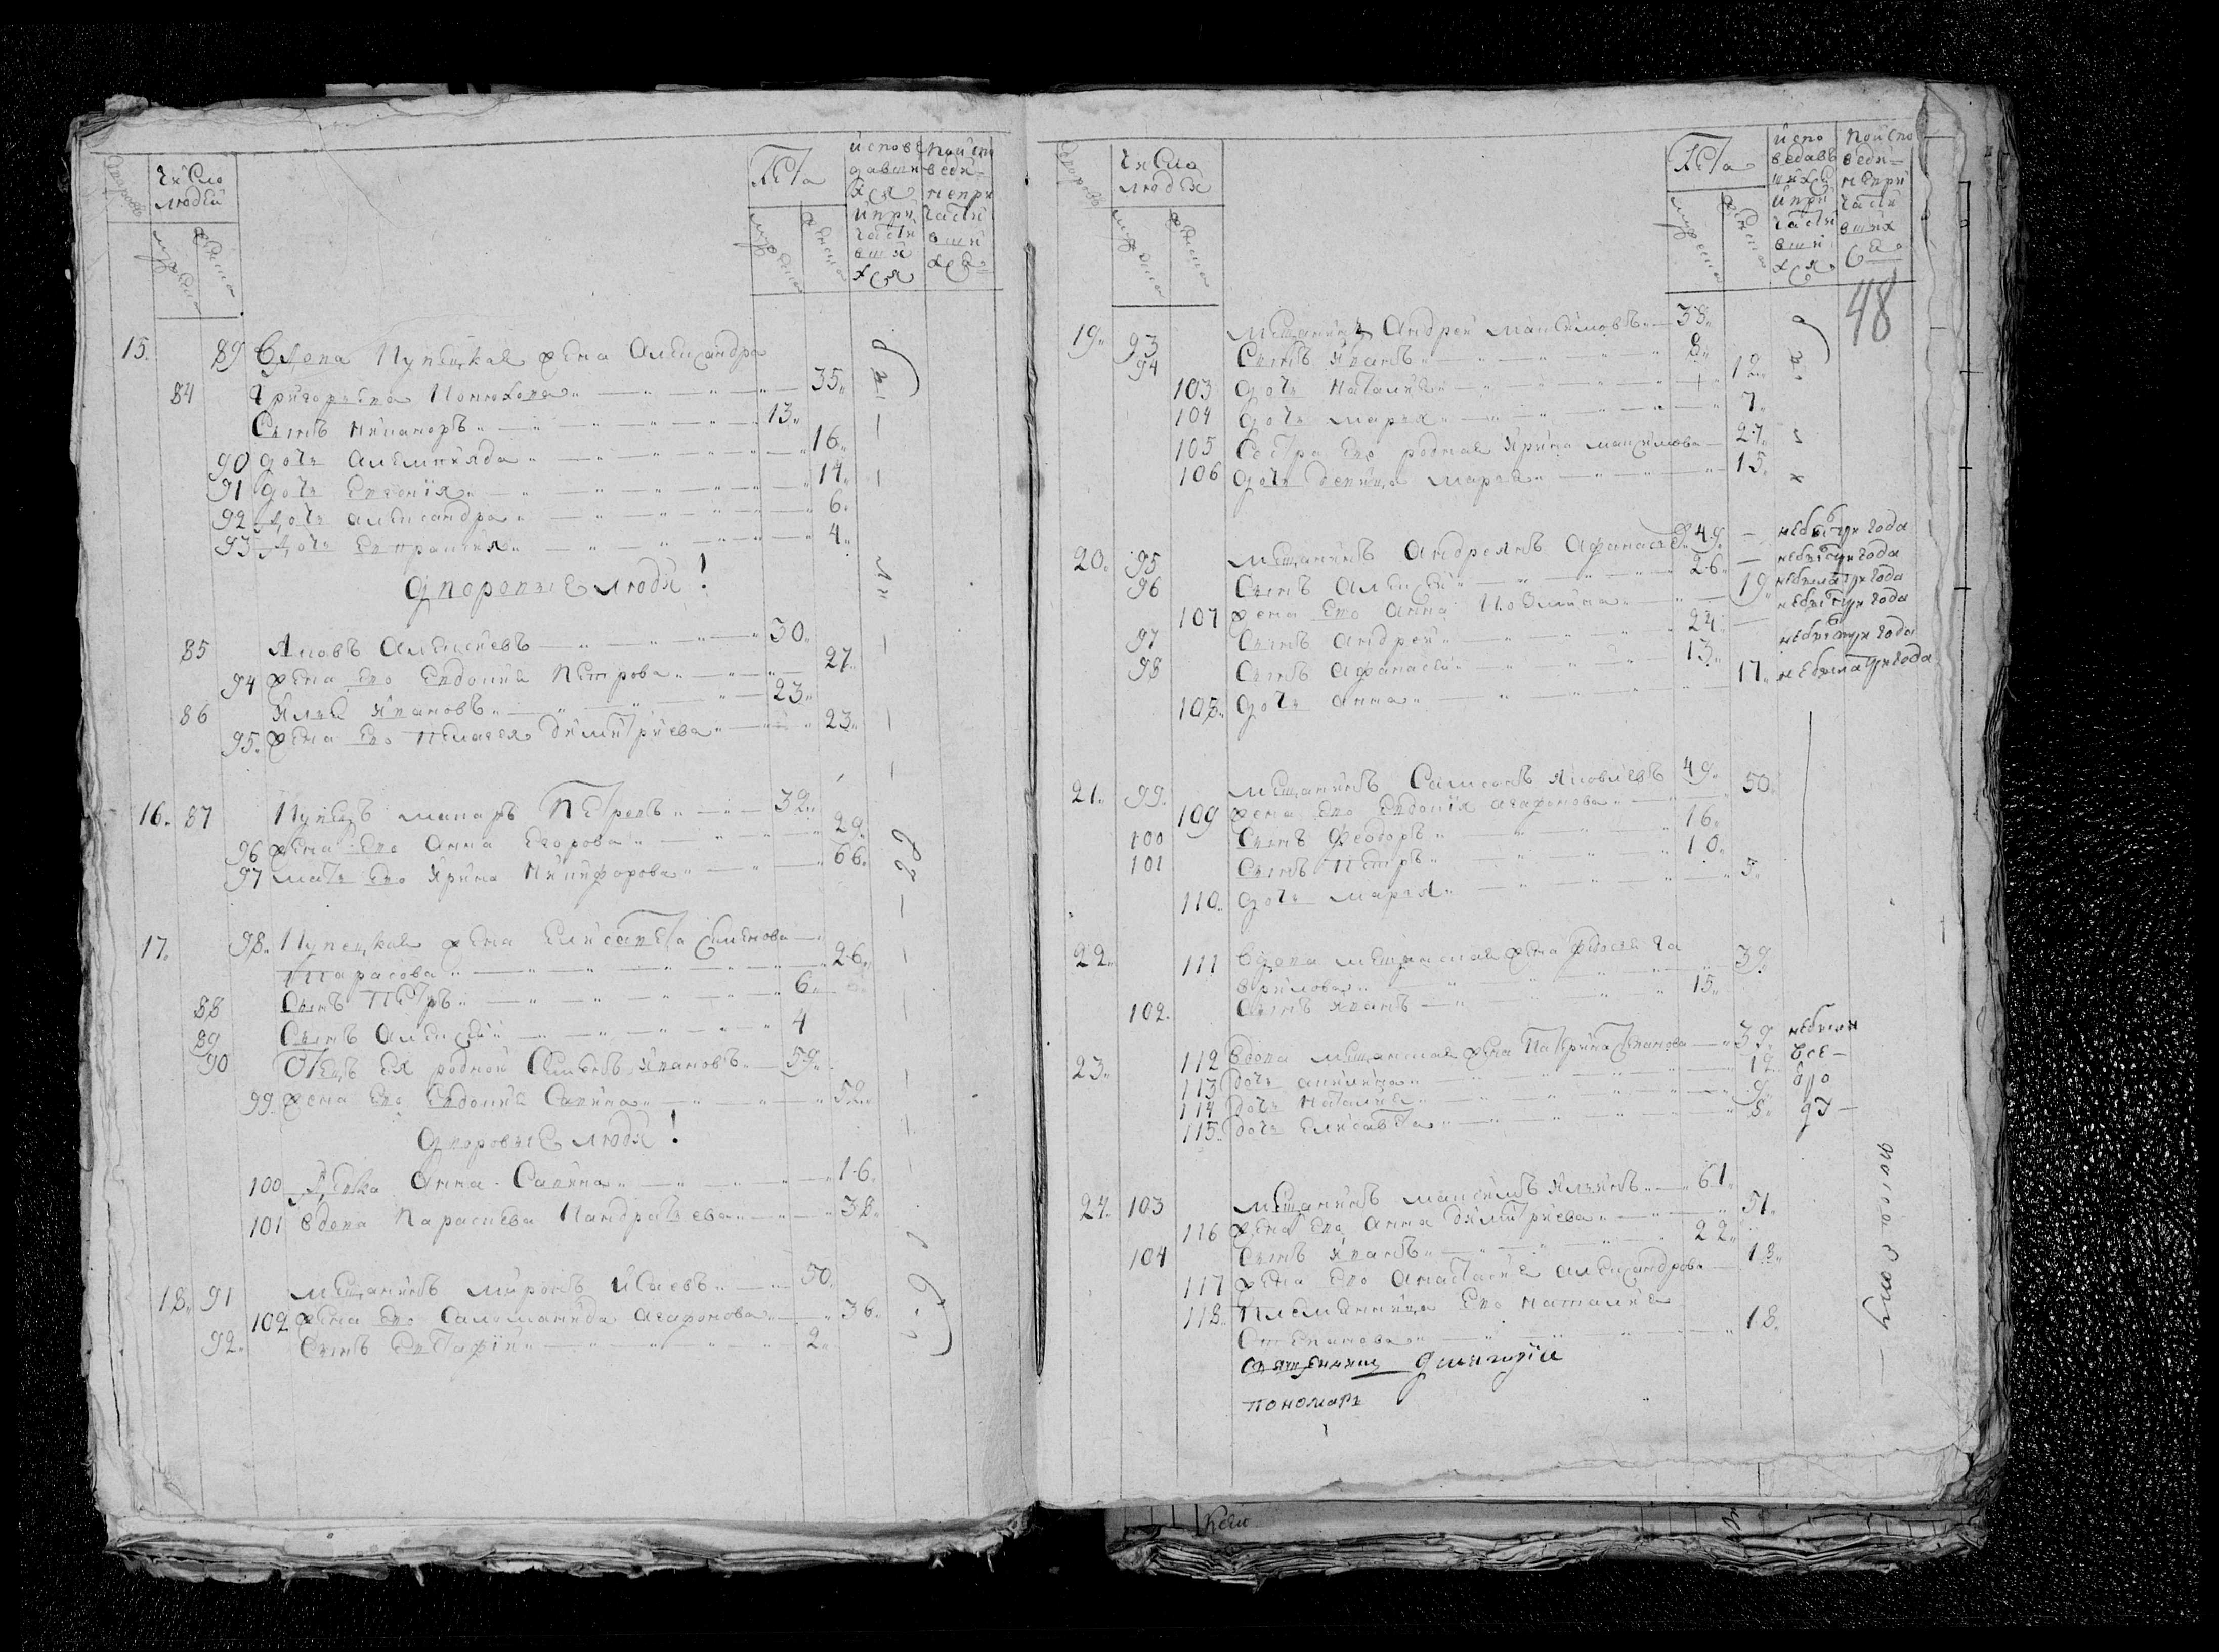 Число людей
Лета
исповедавшихся и причастившихся
по исповеди не причастившихся
15. 89 Вдова купецкая жена Александра
Григорьева 35
84 Сынъ Никаноръ 13
90 дочь Алемпияда 16
91 дочь Евгения 14
92 дочь Александра 6
93 дочь Евпраксия 4
дворовые люди!
85 Яковъ Алексиевъ 30
94 жена ево Евдокия Петрова 27
86 Илья Ивановъ 23
95 жена ево Пелагея Димитриева 23
16. 87 Купецъ Макаръ Петровъ 32
96 жена ево Анна Егорова 29
97 мать ево Ирина Никифорова 66
17. 98 Купецкая жена Елисавета Семенова
Тарасова 26
88 Сынъ Петръ 6
89 Сынъ Алексей 4
90 Отецъ ея родной Семенъ Ивановъ 59
99 жена ево Евдокия Савина 52
дворовые люди!
100 девка Анна Савина 16
101 вдова Параскева Кандратьева 38
18. 91 мещанинъ Миронъ Исаевъ 50
102 жена ево Саломанида Агафонова 36
92 Сынъ Евстафий 2
Число людей
Лета
исповедавшихся и причастившихся
по исповеди не причастившихся
48
19. 93 мещанинъ Андрей Максимовъ 38
94 Сынъ Иванъ 8
103 дочь Наталия 12
104 дочь Марья 7
105 Сестра ево родная Ирина Максимова 27
106 дочь девица Марья 15
20. 95 мещанинъ Андреянъ Афанасьев 49 не бытъ три года
96 Сынъ Алексей 26 не бытъ три года
107 жена ево Анна Козмина 19 не была три года
97 Сынъ Андрей 24 не бытъ три года
98 Сынъ Афанасий 13 не бытъ три года
108 дочь Анна 17 не была три года
21. 99 мещанинъ Самсонъ Яковлевъ 49
109 жена ево Евдокия Агафонова 50
100 Сынъ Феодоръ 16
101 Сынъ Петръ 10
110 дочь Марья 5
22. 111 вдова мещанская жена Федосья Га
врилова 39
102 Сынъ Иванъ 15
23. 112 вдова мещанская жена Катерина Иванова 39 не были
113 дочь Акилина 12 все
114 дочь Наталия 9
115 дочь Елисавета 8
24. 103 мещанинъ Максимъ Ильинъ 61
116 жена ево Анна Димитриева 51
104 Сынъ Иванъ 22
117 жена ево Анастасия Александрова 18
118 Племянница ево Наталия
Степанова 18
священникъ Димитрий
пономарь